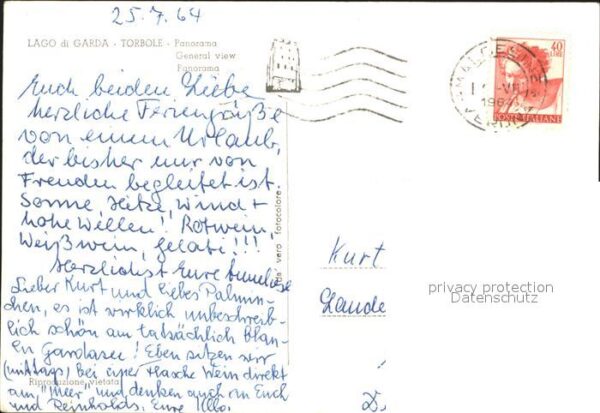 25.7.64
LAGO di GARDA - TORBOLE - Panorama
General view
Panorama
Euch beiden Liebe
herzliche Feriengrüße
von einem Urlaub,
der bisher nur von
Freuden begleitet ist.
Sonne, Hitze, Wind +
hohe Wellen! Rotwein,
Weißwein, gelati!!!
Herzlichst Eure Anneliese
Lieber Kurt und liebes Palmin-
chen, es ist wirklich unbeschreib-
lich schön am tatsächlich blau-
en Gardasee! Eben sitzen wir
(mittags) bei einer Flasche Wein direkt
am "Meer" und denken auch an Euch
und Reinholds, Eure
Riproduzione vietata
vera fotocolore
40
POSTE ITALIANE
MALCESINE
1964
Kurt
Lande
privacy protection
Datenschutz
D.